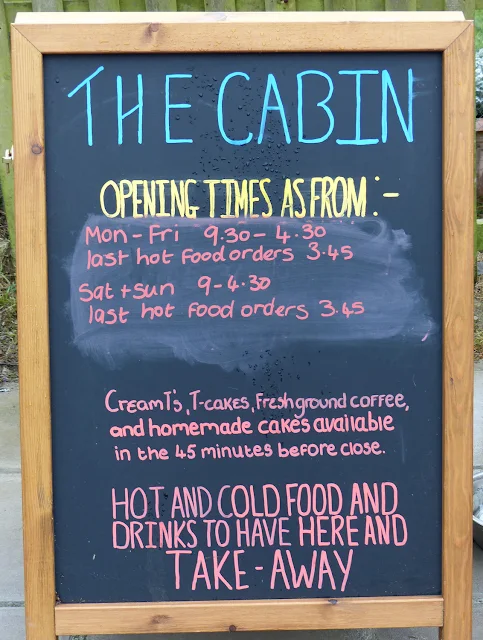 THE CABIN
OPENING TIMES AS FROM :-
Mon - Fri 9.30 - 4.30
last hot food orders 3.45
Sat + sun 9 - 4.30
last hot food orders 3.45
Cream T's, T-cakes, Fresh ground coffee,
and homemade cakes available
in the 45 minutes before close.
HOT AND COLD FOOD AND
DRINKS TO HAVE HERE AND
TAKE - AWAY